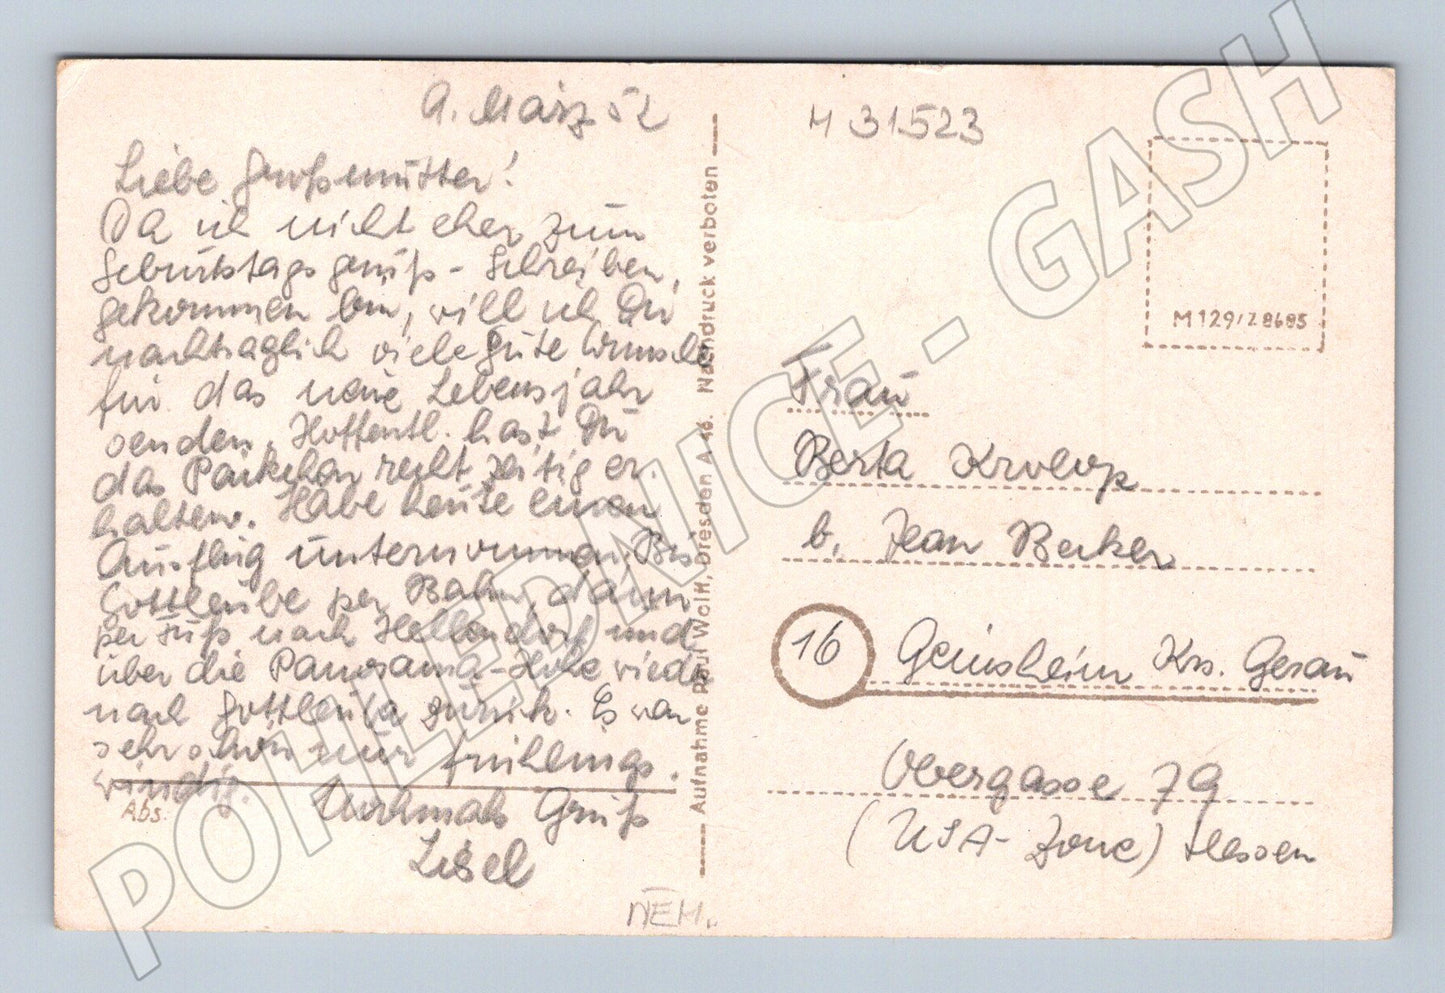 9. März 52
Liebe Großmutter!
Da ich nicht eher zum
Geburtstagsgruß-Schreiben,
gekommen bin, will ich Dir
nachträglich viele gute Wünsche
für das neue Lebensjahr
senden. Hoffentl. hast Du
das Päckchen recht zeitig er-
halten. Habe heute einen
Ausflug unternommen. Bis
Gottleuba per Bahn, dann
per Fuß nach Hellendorf und
über die Panorama-Höhe wieder
nach Gottleuba zurück. Es war
sehr schön nur frühlings-
windig.
Abs.
Nochmals Gruß
Lisel
Aufnahme Paul Wolff, Dresden A 16. Nachdruck verboten
M 31523
M 129/Z 8685
Frau
Berta
b. Jean Becker
16
Geinsheim Krs. Gerau
Obergasse 79
(USA-Zone) Hessen
NEM.
POHLEDNICE - GASH